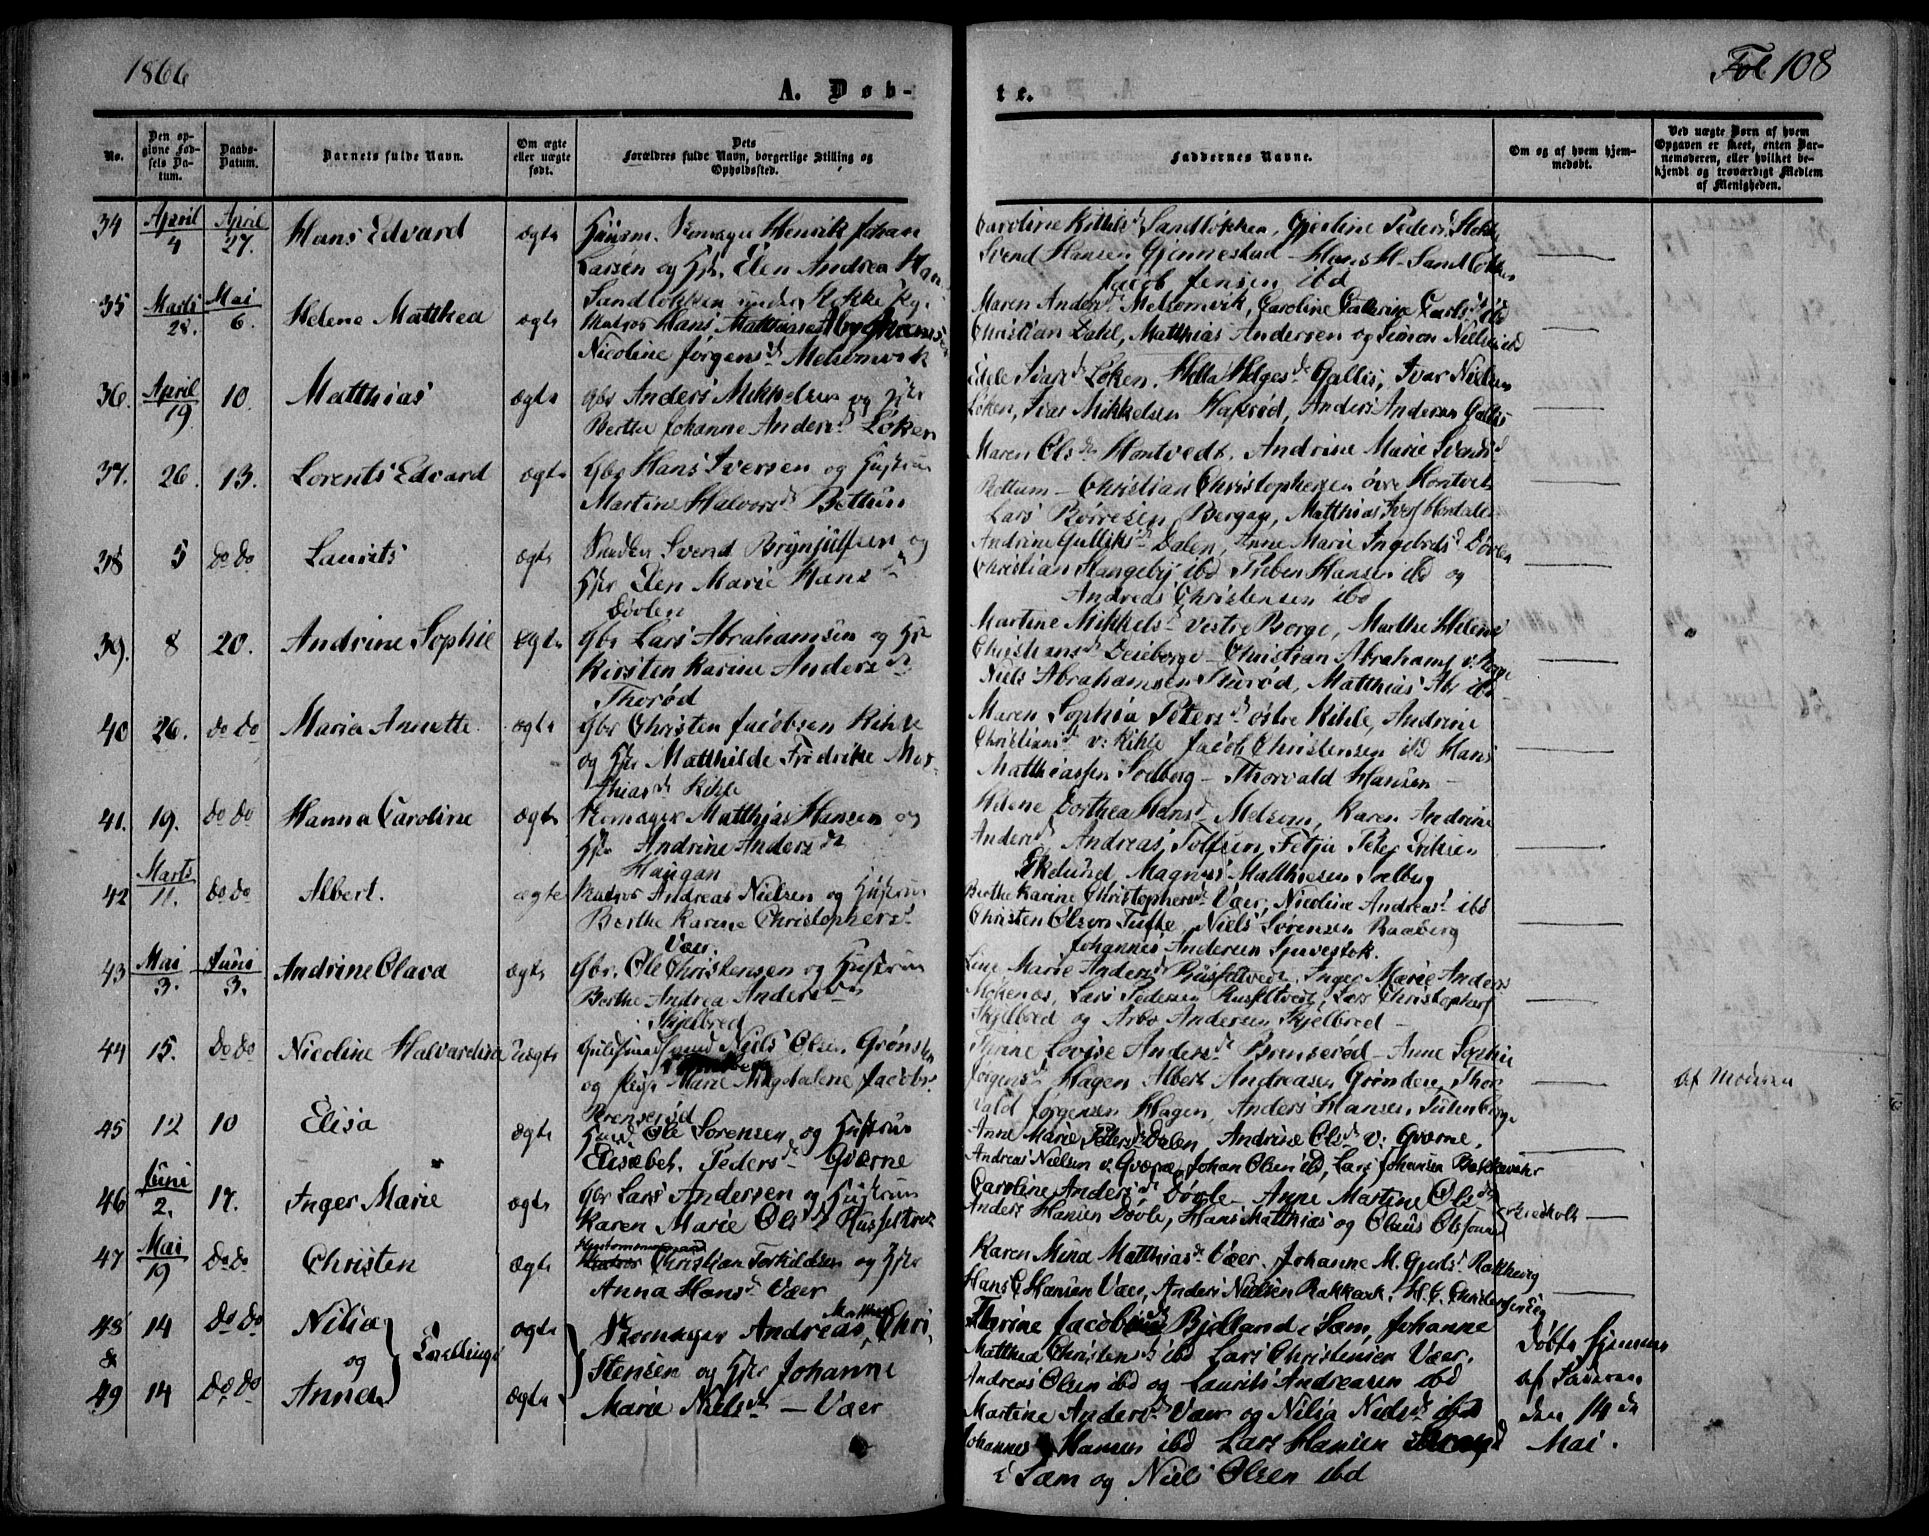 1866
Fol 108
A. Døb-
te.
No.
Den op-
givne Fød-
sels Da-
tum.
Daabs-
Datum.
Barnets fulde Navn.
Om ægte
eller uægte
født.
Dets
Forældres fulde Navn, borgerlige Stilling og
Opholdssted.
Faddernes Navne.
Om og af hvem hjem-
medøbt.
Ved uægte Børn af hvem
Opgaven er skeet, enten Bar-
nemoderen, eller hvilket be-
kjendt og troværdigt Medlem
af Menigheden.
34 April 4 April 27. Hans Edvard ægte
Huusm. Skomager Henrik Johan
Larsen og Hst. Elen Andrea Han
Sandløkken under Stokke
Caroline Kittilsd Sandløkken, Gjerline Pedersd Stokke
Svend Hansen Gjennestad - Hans H. Sandløkken
Jacob Jensen ibd
35 Marts 28. Mai 6. Helene Matthea ægte
Matros Hans Matthiassen
Nicoline Jørgensd Melsomvik
Maren Andersd Melsomvik, Caroline Cathrine Carlsd ibd
Christian Dahl, Matthias Andersen og Simon Nielsen ibd
36. April 19 10. Matthias ægte
Gbr Anders Mikkelsen og Hstr
Berthe Johanne Andersd Løken
Edele Ivarsd Løken, Helta Helgesd Gallis, Ivar Nielsen
Løken, Ivar Mikkelsen Hasrød, Anders Andersen Gallis
37. 26. 13. Lorents Edvard ægte
Gbr Hans Iversen og Hustrue
Martine Halvorsd Bettum
Maren Olsd Hontvedt, Andrine Marie Svendsd
Bottum - Christian Christophersen øvre Hontvedt
Lars Børresen Bergan, Matthias
38 5 do do Laurits ægte
Snedker Svend Brynjulfsen og
Hstr Elen Marie Hansd
Døvlen
Andrine Gulliksd Dalen, Anne Marie Ingebrdsd Døvlen
Christian Haugeby ibd Preben Hansen ibd og
Andreas Christensen ibd
39. 8 20. Andrine Sophie ægte
Gbr Lars Abrahamsen og Hst
Kirsten Karine Andersdr
Thorød
Martine Mikkelsd vestre Borge, Marthe Helene
Christiansd Borge - Christian Abrahams v. Borge
Niels Abrahamsen Thorød, Matthias Abr ibd
40 26. do do Maria Annette ægte
Gbr Christen Jacobsen Kihle
og Hstr Matthilde Fredrikke Mat-
thiasd Kihle
Maren Sophia Petersd østre Kihle, Andrine
Christiansd v: Kihle Jacob Christensen ibd Hans
Matthiassen Solberg - Thorvald Hansen -
41. 19. do do Hanna Caroline ægte
Skomager Matthias Hansen og
Hstr Andrine Andersdr
Haugan
Helene Dorthea Hansd Melsom, Karen Andrine
Andersd, Andreas Tolfsen, Petja Peter Eriksen
Ekelund Magnus Matthiesen Solberg
42 Marts 11. do do Albert. ægte
Matros Andreas Nielsen og Hustrue
Berthe Karine Christophersd
Vær
Berthe Karine Christophersd Vær, Nicoline Andreasd ibd
Christen Olsen Tufte, Niels Sørensen Raaberg
Johannes Andersen Sjuvestok.
43 Mai 3. Juni 3. Andrine Olava ægte
Gbr. Ole Christensen og Hustrue
Berthe Andrea Andersdr
Skjelbred
Line Marie Andersd Russeltvedt, Inger Marie Anders
Mokenæs, Lars Pedersen Russeltvedt, Lars Christophers
Skjelbred og Arbo Andersen Skjelbred -
44 15. do do Nicoline Halvardina Uægte
Niels Olsen Grønsten
og Pige Marie Magdalene Jacobsd
Brenserød
Thrine Lovise Andersd Brenserød - Anne Sophie
Jørgensd Hagen Albert Andreasen Grønden, Thor
vald Jørgensen Hagen, Anders Hansen
af Moderen
45 12 10 Elisa ægte
Ole Sørensen og Hustrue
Elisabet Pedersdr Qværne
Anne Marie Pedersd Dalen, Andrine Olsd v: Qværne,
Andreas Nielsen v. Qværne, Johan Olsen ibd, Lars Johansen
46 Juni 2. 17. Inger Marie ægte
Gbr Lars Andersen og Hustrue
Karen Marie Olsd Russeltvedt
Caroline Andersd Døvle - Anne Martine Olsdr
Anders Hansen Døvle, Hans Matthias og Olaus Olsønner
47 Mai 19 do do Christen ægte
Christian Torkildsen og Hstr
Anna Hansd Vær
Karen Mina Matthiasd Vær, Johanne M. Gjertsd
Hans C Hansen Vær, Anders Nielsen
48 14 do do Nilia
og
& 49 14 do do Anna
Tvillinge
ægte
ægte
Skomager Andreas Matthias Chri-
stensen og Hstr Johanne
Marie Nielsdr - Vær
Thrine Jacobsd Bjelland, i Sæm, Johanne
Matthea Christensd ibd Lars Christensen Vær.
Andreas Olsen ibd og Laurits Andreasen ibd
Martine Andersd Vær og Nilia Nielsd ibd
Johannes Hansen ibd Lars Hansen
i Sæm og Niels Olsen ibd
Døbte hjemme
af
den 14 de
Mai.